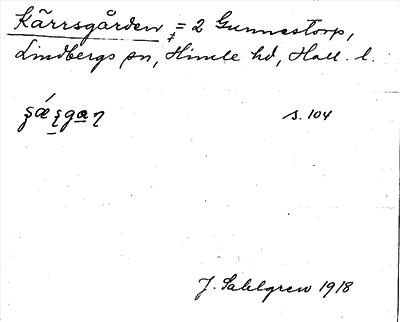 Kärrsgården = 2 Gunnestorp,
Lindbergs sn, Himle hd, Hall. l.
s. 104
J. Sahlgren 1918